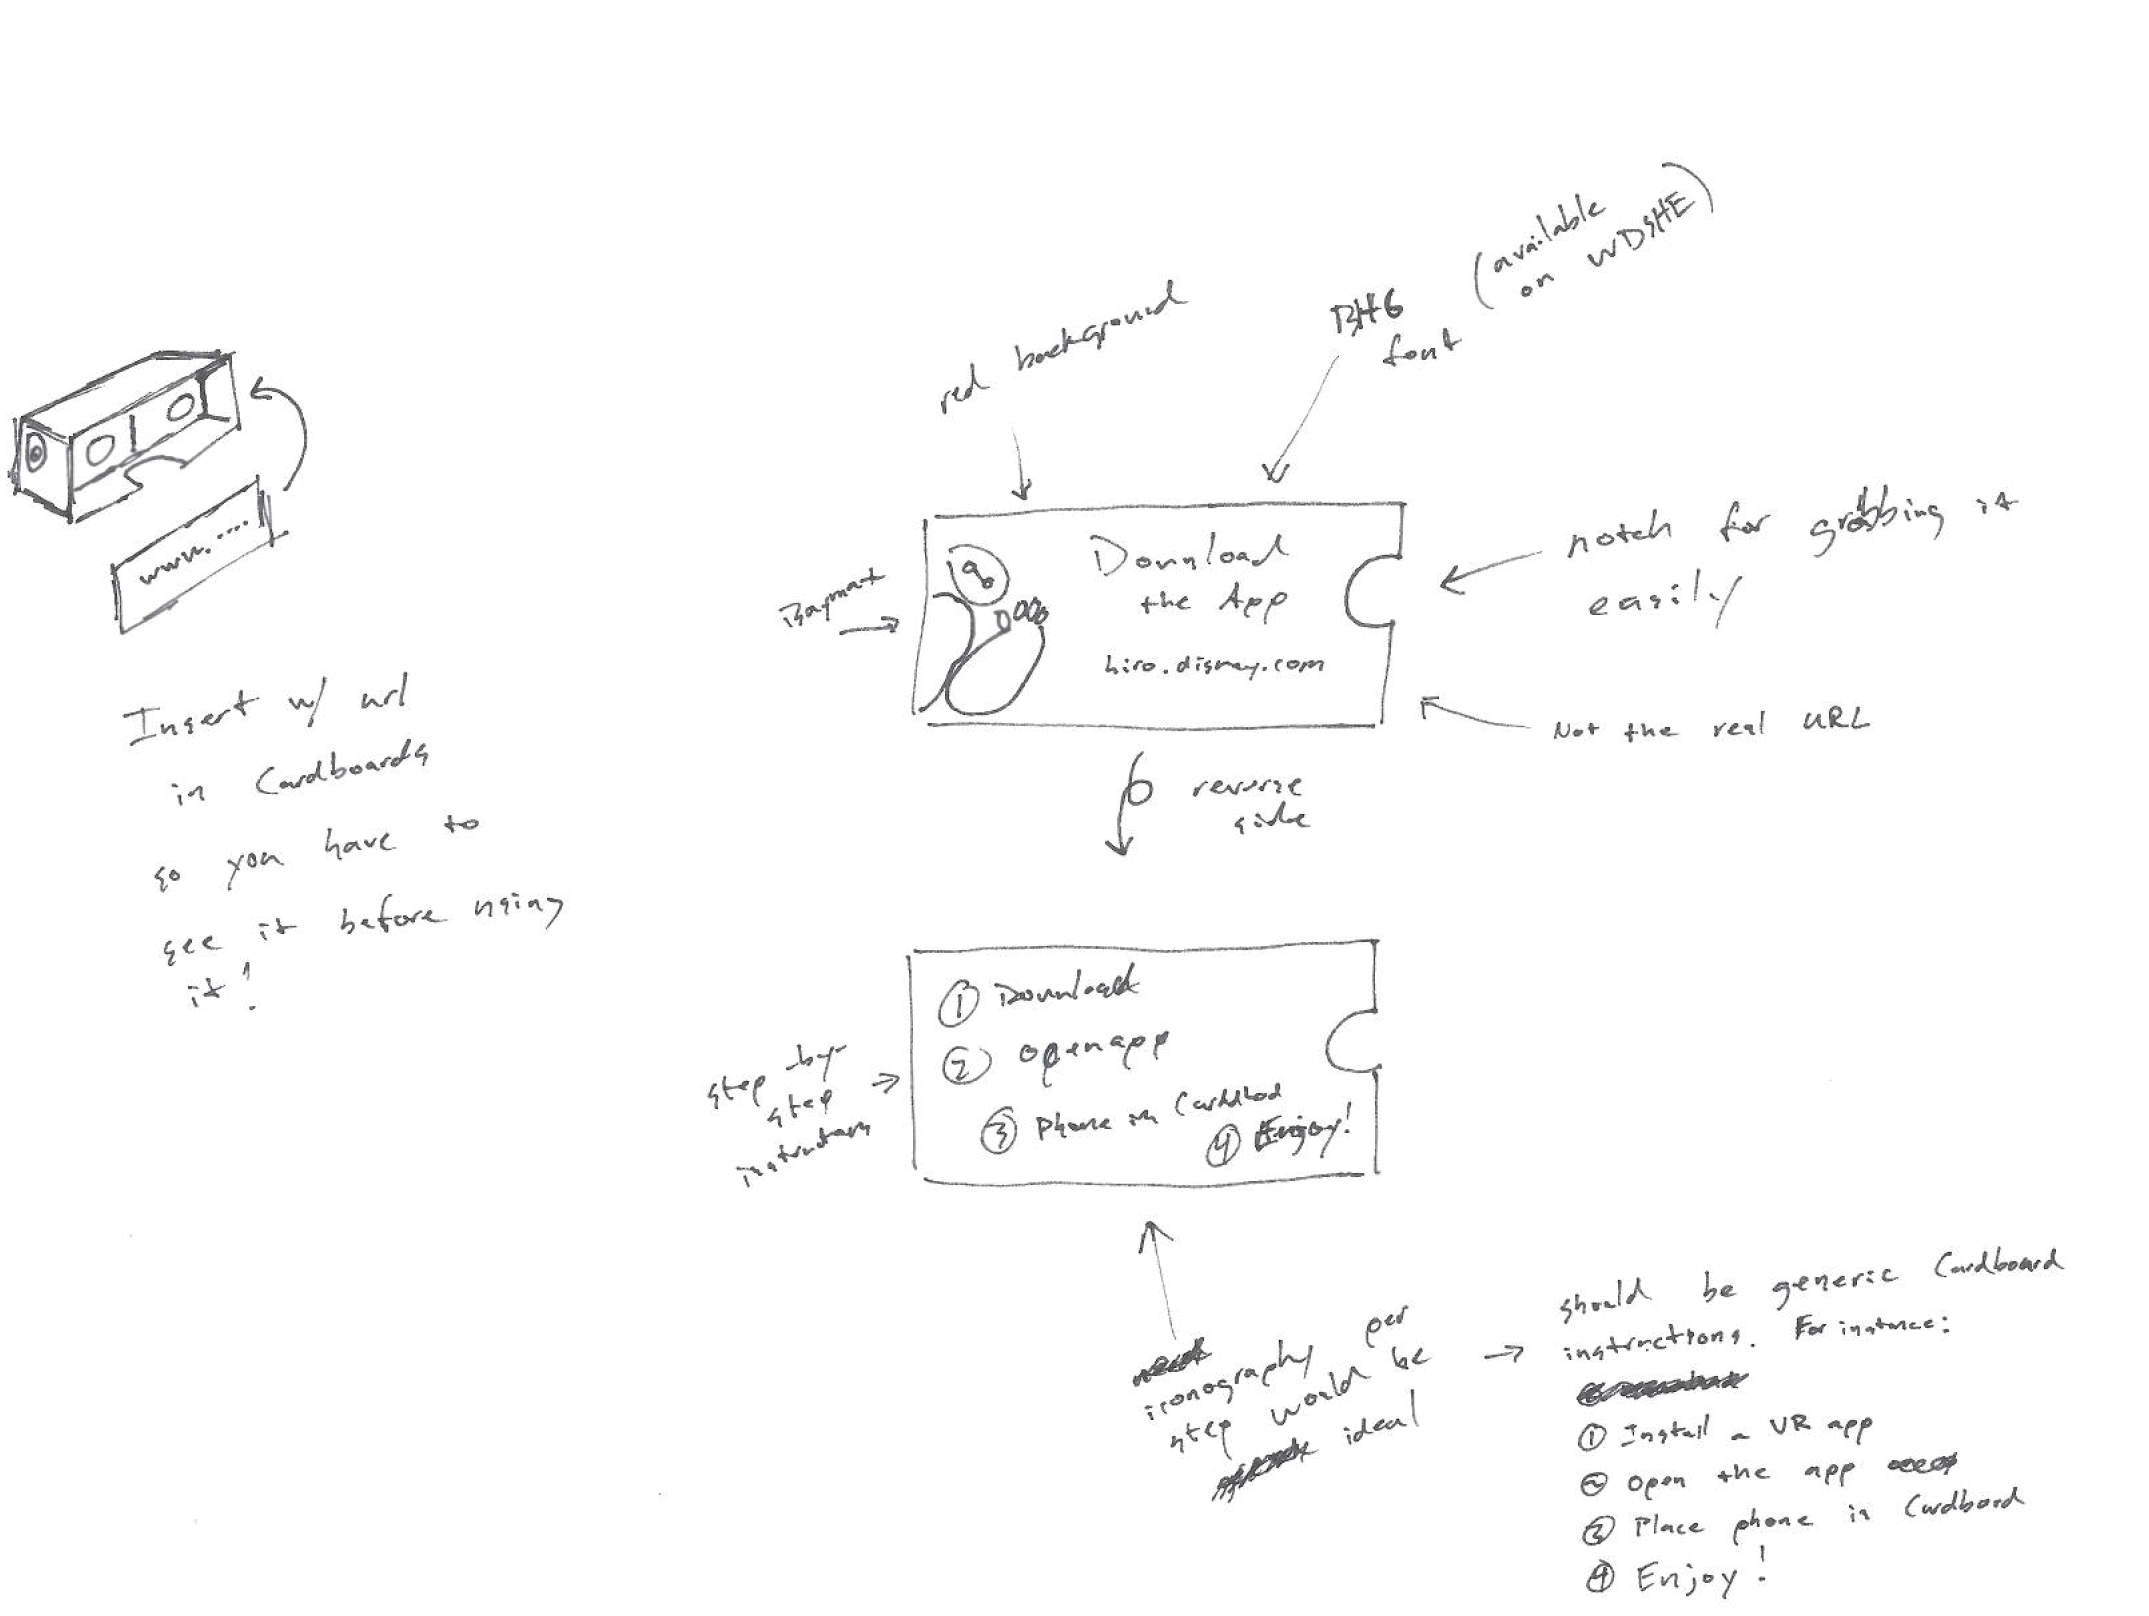 www. ....
Insert w/ url
in Cardboards
so you have to
see it before using
it!
red background
BH6
font
(available
on WDSHE)
Baymax
Download
the App
hiro.disney.com
notch for grabbing it
easily
Not the real URL
reverse
side
step-by-
step
① Download
② open app
③ Phone in
④ Enjoy!
iconography per
step would be
ideal
should be generic Cardboard
instructions. For instance:
① Install a VR app
② Open the app
③ Place phone in Cardboard
④ Enjoy!